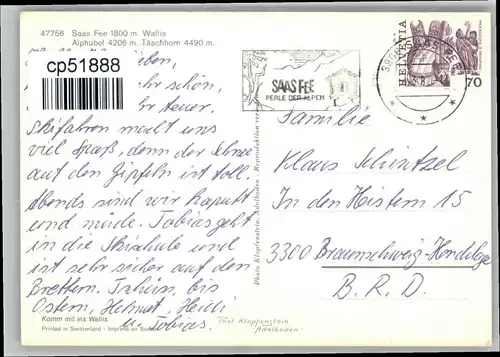 47756 Saas Fee 1800 m. Wallis
Alphubel 4206 m. Täschhorn 4490 m.
cp51888
ieben,
hr schön,
hr teuer.
Skifahren macht uns
viel Spaß, denn der Schnee
auf den Zipfeln ist toll.
Abends sind wir kaputt
und müde. Tobias geht
in die Skischule und
ist sehr sicher auf den
Brettern. Tschüss, bis
Ostern, Helmut, Heidi
u. Tobias.
Komm mit ins Wallis
Printed in Switzerland - Imprimé en Suisse
Photo Klopfenstein, Adelboden - Reproduktion
SAAS FEE
PERLE DER ALPEN
HELVETIA
70
Familie
Klaus Schintzel
In den Höstern 15
3300 Braunschweig-Hondelage
B.R.D.
Phot Klopfenstein
Adelboden